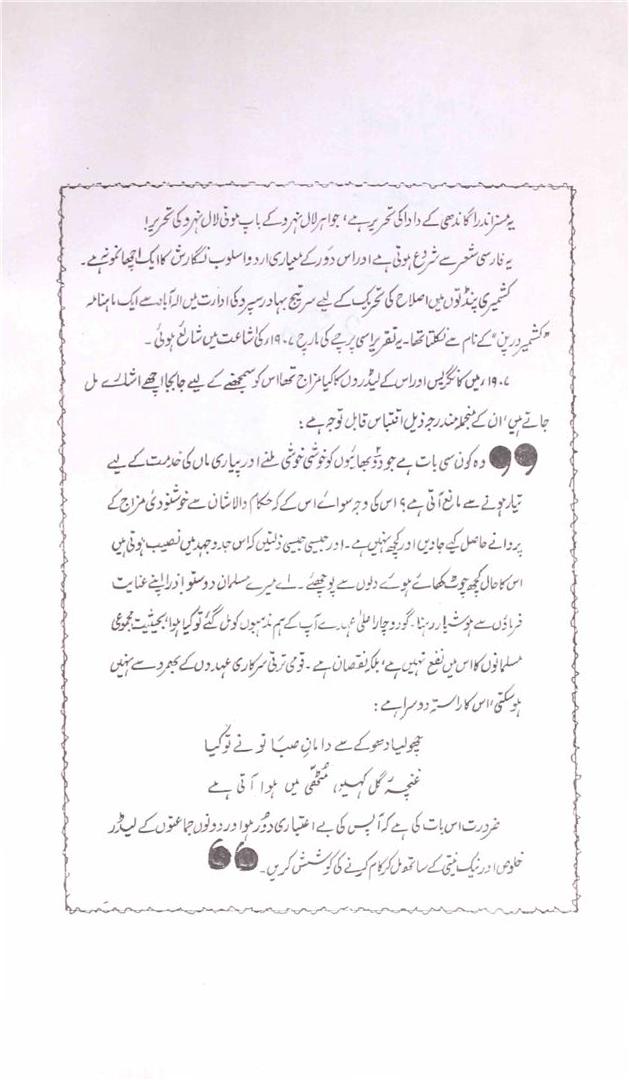 یہ مسز اندرا گاندھی کے دادا کی تحریر ہے، جواہر لال نہرو کے باپ موتی لال نہرو کی تحریر!
یہ فارسی شعر سے شروع ہوتی ہے اور اس دَور کے معیاری اردو اسلوب نگارش کا ایک اچھا نمونہ ہے۔
کشمیری پنڈتوں میں اصلاح کی تحریک کے لیے سر تیج بہادر سپرو کی ادارت میں الہ آباد سے ایک ماہنامہ
"کشمیر درپن" کے نام سے نکلتا تھا۔ یہ تقریر اسی پرچے کی مارچ ۱۹۰۷ء کی اشاعت میں شائع ہوئی۔
۱۹۰۷ء میں کانگریس اور اس کے لیڈروں کا کیا مزاج تھا اس کو سمجھنے کے لیے جابجا اچھے اشارے مل
جاتے ہیں، ان کے منجملہ مندرجہ ذیل اقتباس قابل توجہ ہے:
❞ وہ کون سی بات ہے جو دو بھائیوں کو خوشی خوشی ملنے اور پیاری ماں کی خدمت کے لیے
تیار ہونے سے مانع آتی ہے؟ اس کی وجہ سوائے اس کے کہ حکام والاشان سے خوشنودی مزاج کے
پروانے حاصل کیے جاویں اور کچھ نہیں ہے۔ اور جیسی جیسی ذلتیں کہ اس جدوجہد میں نصیب ہوتی ہیں
اس کا حال کچھ چوٹ کھائے ہوے دلوں سے پوچھئے۔ اے میرے مسلمان دوستو! ذرا اپنے عنایت
فرماؤں سے ہوشیار رہنا۔ گو دو چار اعلیٰ عہدے آپ کے ہم مذہبوں کو مل گئے تو کیا ہوا، بحیثیت مجموعی
مسلمانوں کا اس میں نفع نہیں ہے، بلکہ نقصان ہے۔ قومی ترقی سرکاری عہدوں کے بھروسے نہیں
ہو سکتی، اس کا راستہ دوسرا ہے:
چھو لیا دھوکے سے دامانِ صبا تو نے تو کیا
غنچۂ گل کہیں مُٹھّی میں ہوا آتی ہے
ضرورت اس بات کی ہے کہ آپس کی بے اعتباری دُور ہو اور دونوں جماعتوں کے لیڈر
خلوص اور نیک نیتی کے ساتھ مل کر کام کرنے کی کوشش کریں۔ ❝